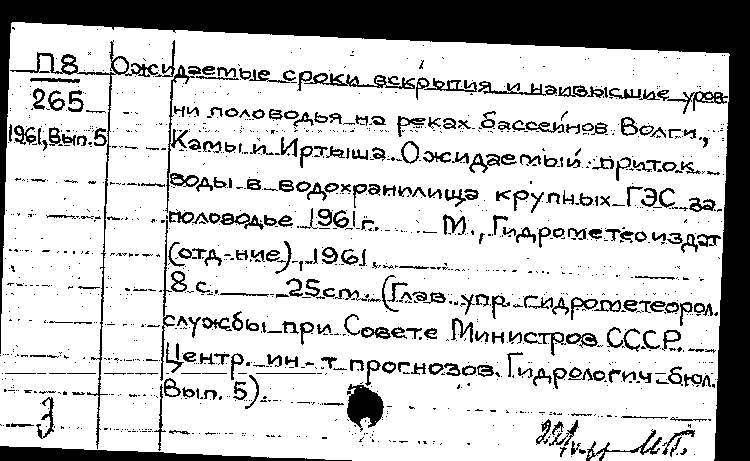 П8
265
1961, Вып. 5
Ожидаемые сроки вскрытия и наивысшие уров-
ни половодья на реках бассейнов Волги,
Камы и Иртыша. Ожидаемый приток
воды в водохранилища крупных ГЭС за
половодье 1961 г. М., Гидрометеоиздат
(отд-ние), 1961.
8 с. 25 cm. (Глав. упр. гидрометеорол.
службы при Совете Министров СССР.
Центр. ин-т прогнозов. Гидрологич. бюл.
Вып. 5).
3